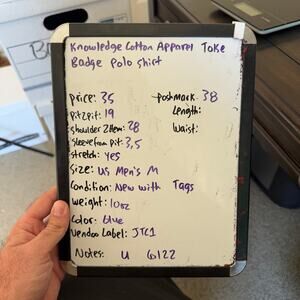 Knowledge Cotton Apparel Toke
Badge Polo Shirt
Price: 35
Poshmark: 38
Pit2Pit: 19
Length:
Shoulder 2 Hem: 28
Waist:
Sleeve from Pit: 3,5
Stretch: Yes
Size: US Men's M
Condition: New with Tags
Weight: 10oz
Color: blue
Vendoo Label: JTC1
Notes: U 6122